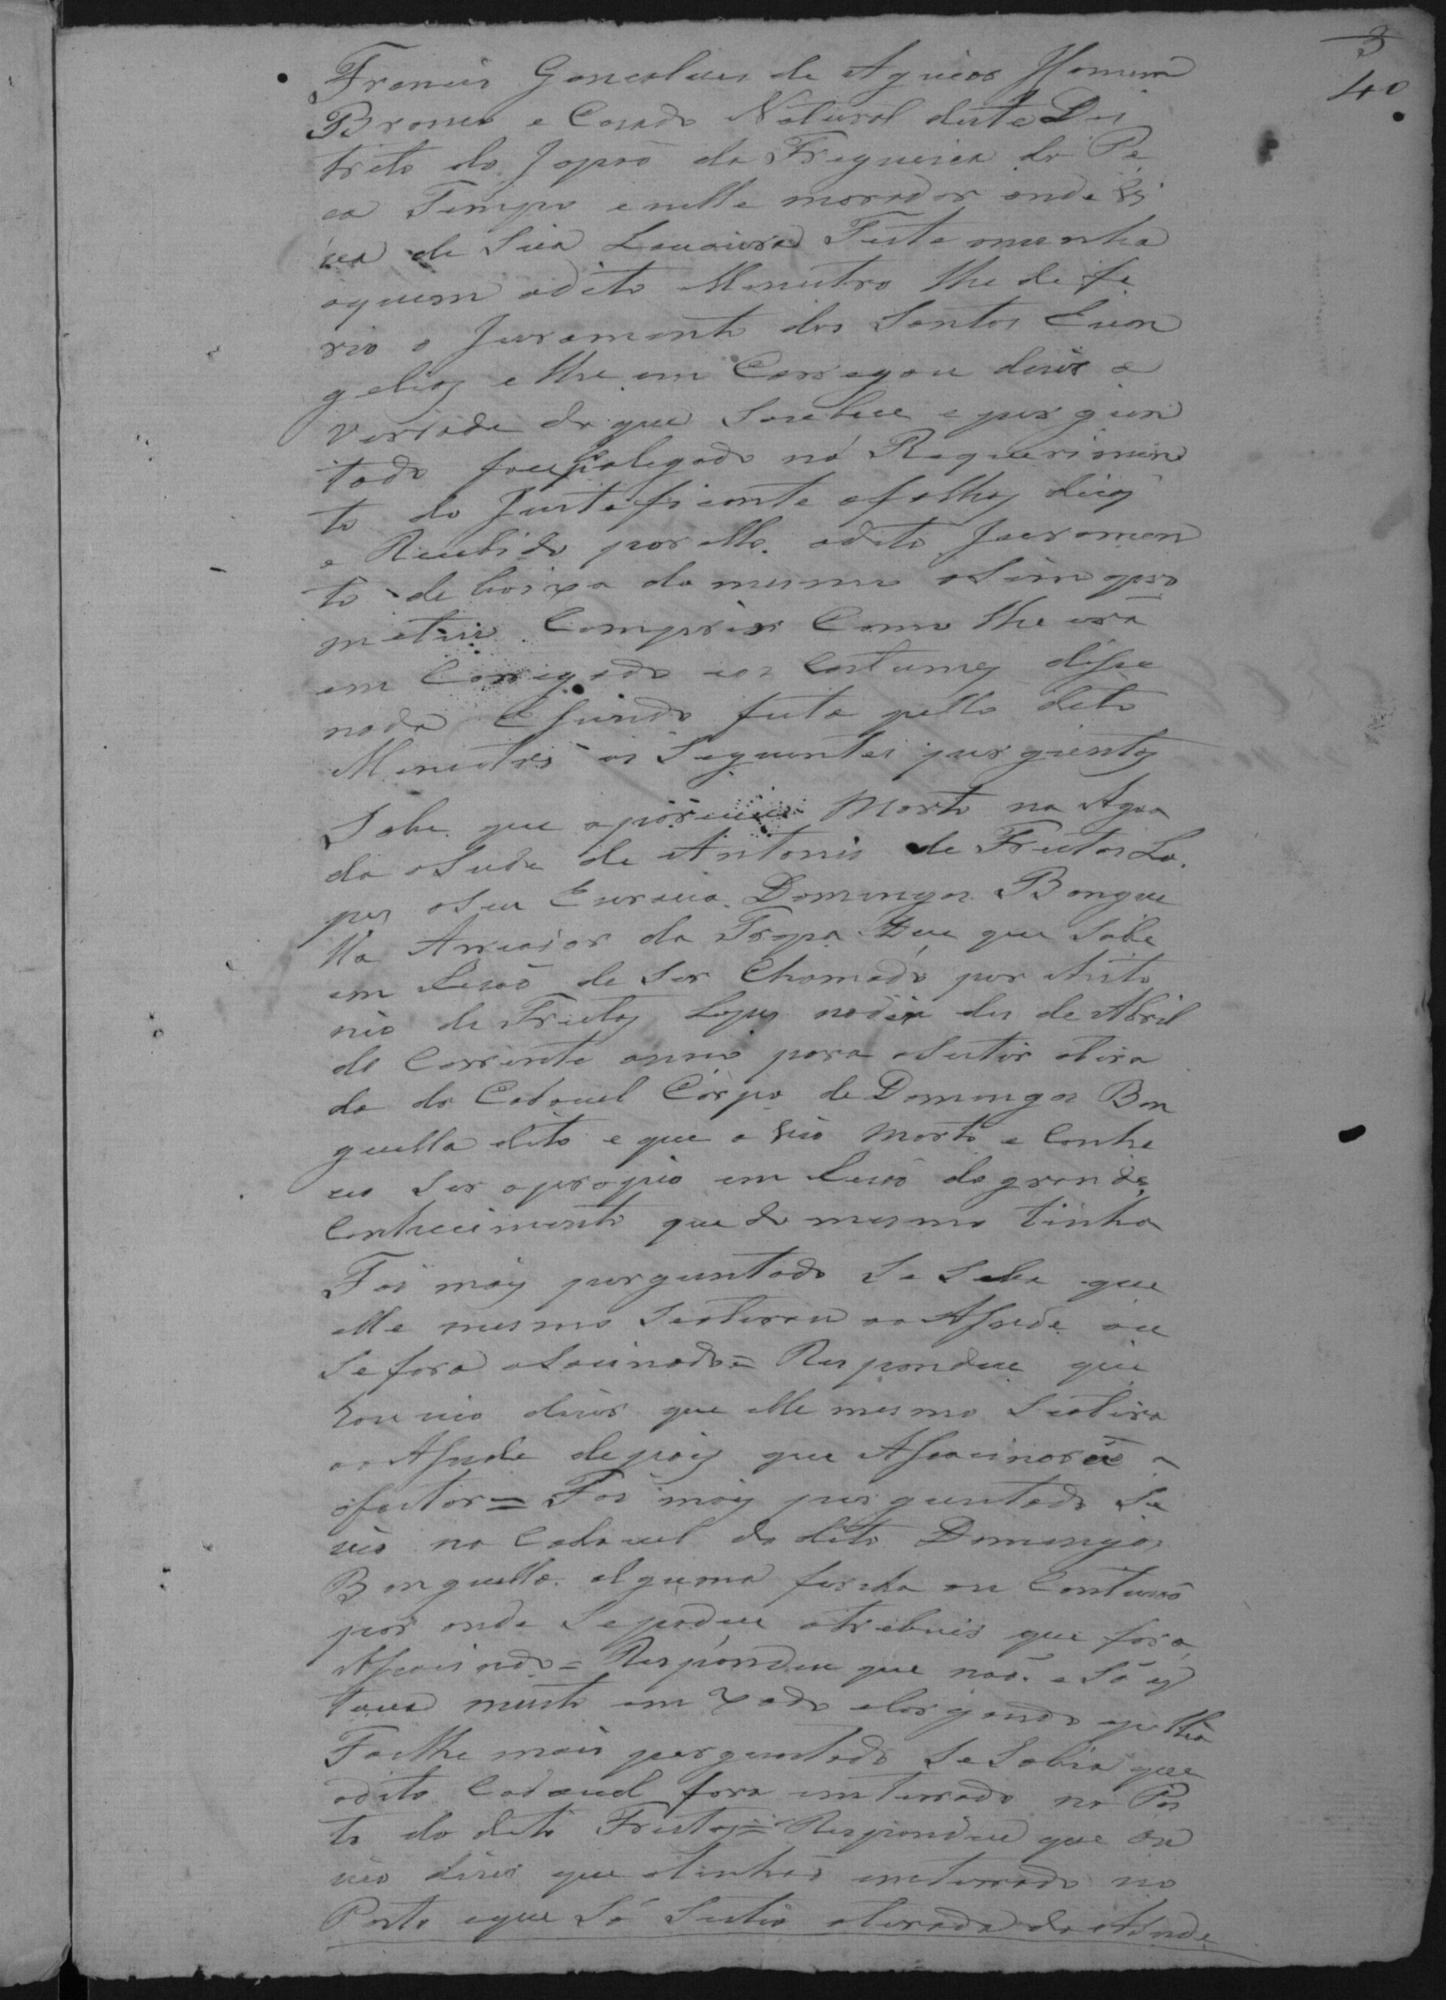 3
40
Francis Goncalues de Aguiar Homem
Branco e Casado Natural deste Des
trito do Japaõ da Freguesia do Pe
ca Tempo e nelle morador onde Vi
ue de Sua Lauoira Testemunha
aquem odito Menistro lhe defe
rio o Juramento dos Santos Euan
gelios e lhe em Carregou dicese a
verdade do que Soubece e pergun
tado foce alegado no Requerimen
to do Justeficante afolhas duas
e Recebido por elle odito Juramen
to de baixo do mesmo aSim pro
meteu Comprir Como lhe era
em Carregado aos Custumes diSse
nada eSendo feita pello dito
Menistro as Seguintes perguntas
Sabe que apareceu Morto na Agoa
do aSude de Antonio de Freitas Lo
pes oSeu Escrauo Domingos Bengue
lla Arreador da Tropa Dice que Sabe
em Resaõ de Ser Chamado por Anto
nio de Freitas Lopes nodia des de Abril
do Corrente anno para aSistir atira
da do Cadauel Corpo de Domingos Ben
guella dito e que o Vio Morto e Conhe
ceo Ser oproprio em Resaõ do grande
Conhecimento que do mesmo tinha
Foi mais perguntado Se Sabe que
elle mesmo Seatirou ao ASude ou
Se fora aSacinado = Respondeu que
Ouuio diser que elle mesmo Seatira
ao ASude depois que ASacinoraõ a
ofeitor = Foi mais perguntado Se
uio no Cadauel do dito Domingos
Benguella alguma ferida ou Contusaõ
por onde Sepodece atrebuir que fora
ASacinado = Respondeu que naõ e Só es
taua muito em xado elargando apelle
Foilhe mais perguntado Se Sabia que
odito Cadauel fora enterrado no Pas
to do dito Freitas = Respondeu que Ou
uio diser que otinhaõ enterrado no
Pasto eque Só Sestio atirada do ASude